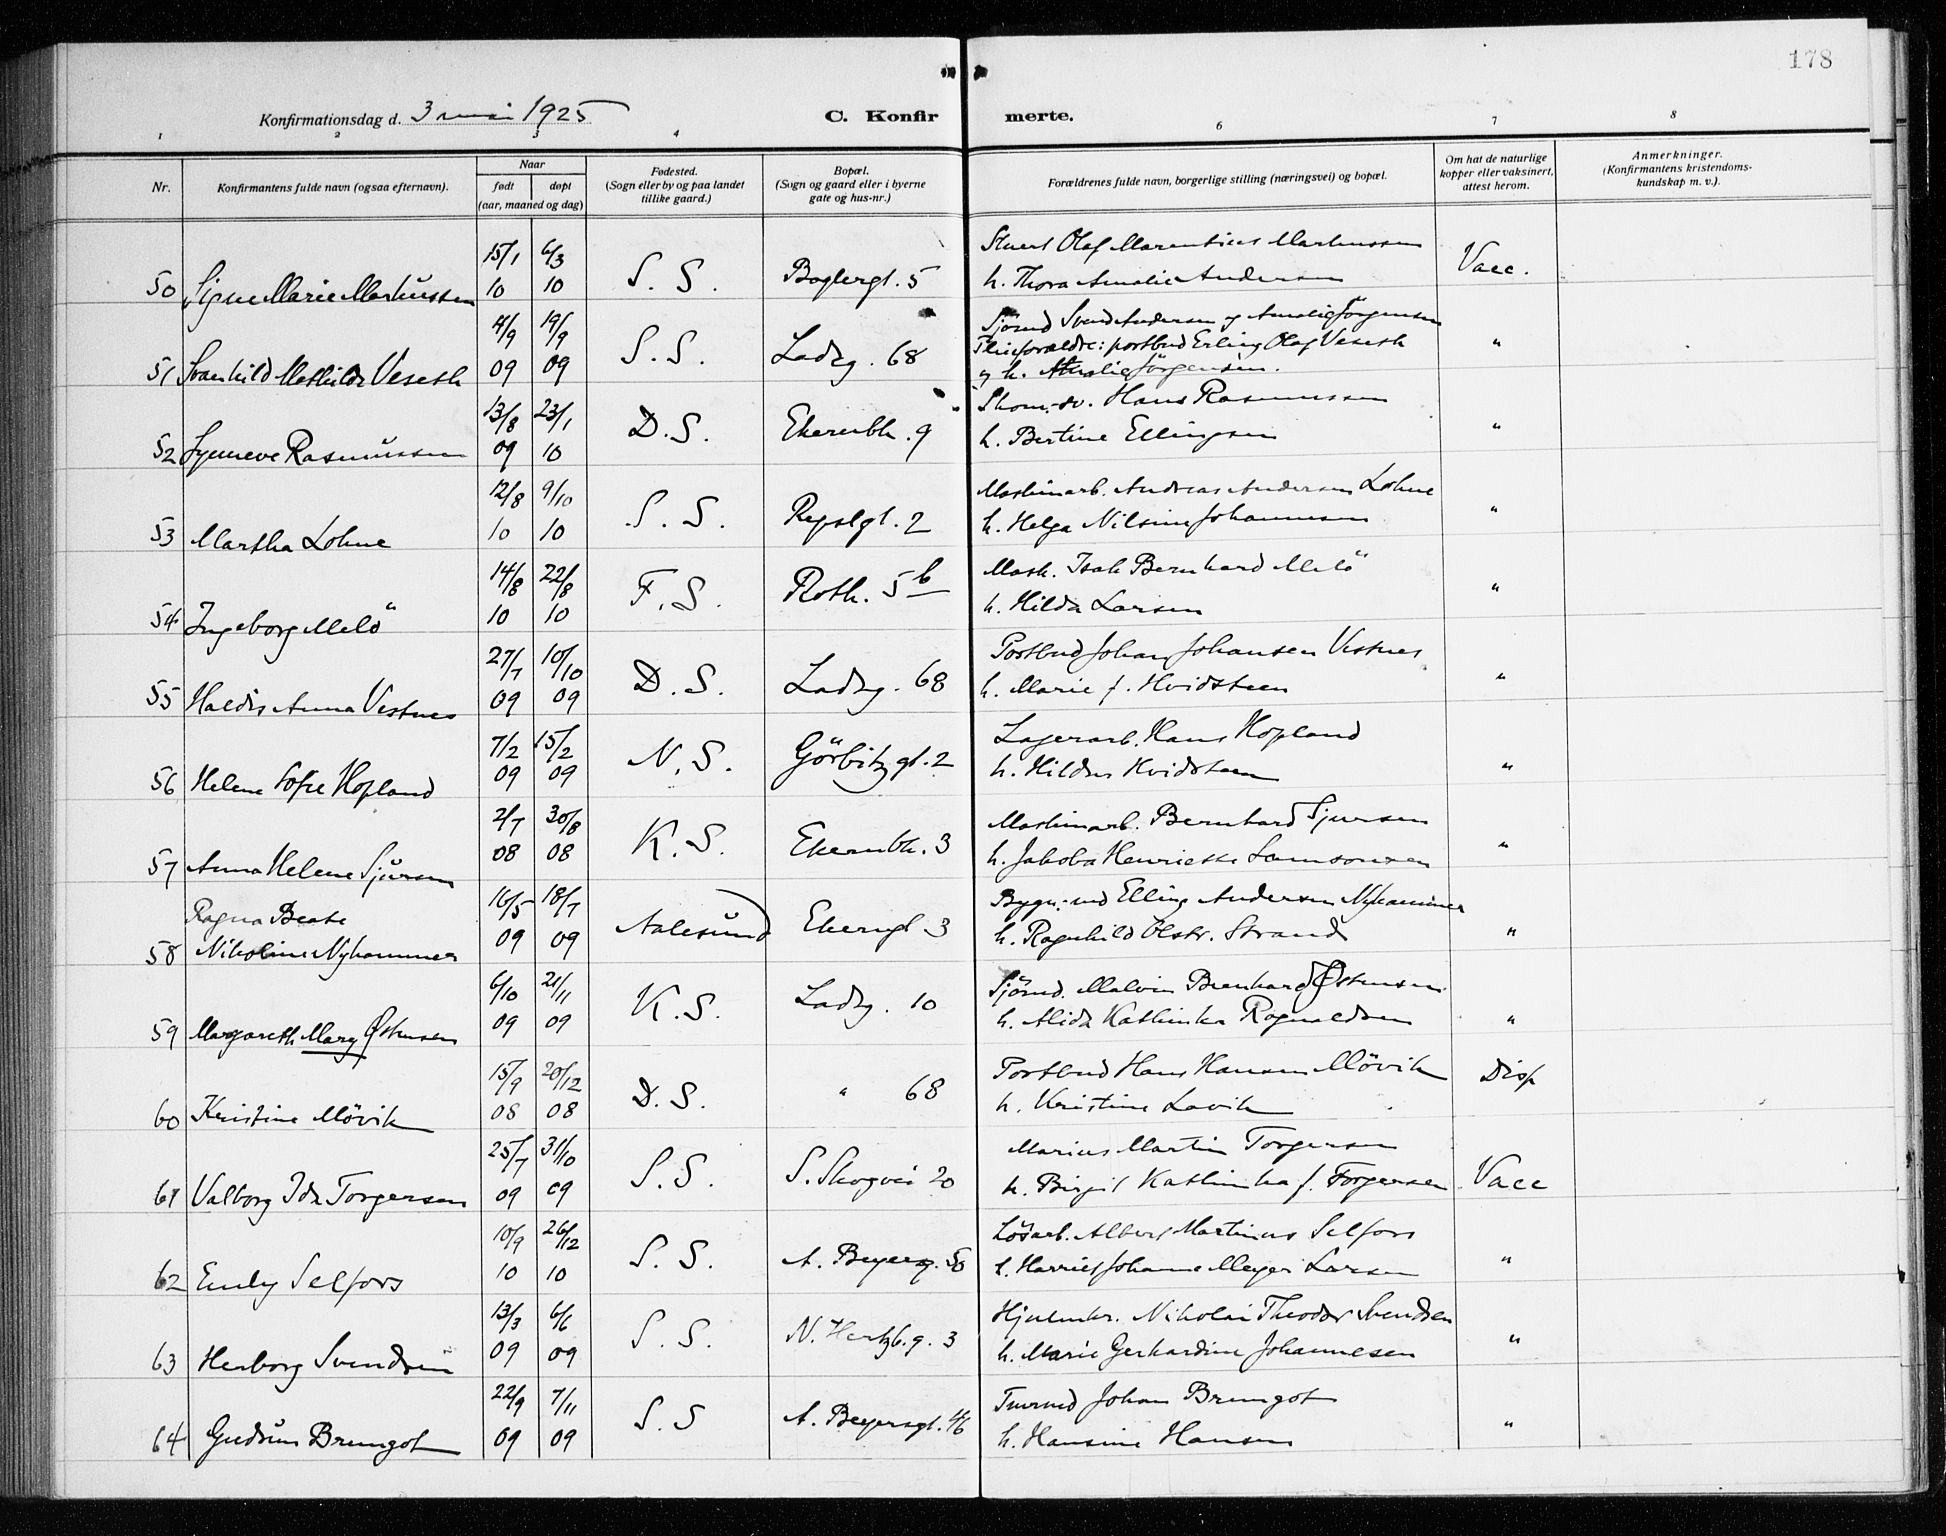 178
Konfirmationsdag d. 3 mai 1925
C. Konfirmerte.
1 2 3 4 6 7 8
Nr.
Konfirmantens fulde navn (ogsaa efternavn).
Naar
født
døpt
(aar, maaned og dag)
Fødested.
(Sogn eller by og paa landet
tillike gaard.)
Bopæl.
(Sogn og gaard eller i byerne
gate og hus-nr.)
Forældrenes fulde navn, borgerlige stilling (næringsvei) og bopæl.
Om hat de naturlige
kopper eller vaksinert,
attest herom.
Anmerkninger.
(Konfirmantens kristendoms-
kundskap m. v.).
50 Signe Marie Markussen 15/1 10 6/3 10 S. S. Baglergt. 5
Stuert Olaf Marentius Markussen
h. Thora Amalie Andersen
Vacc.
51 Svanhild Mathilde Veseth 4/9 09 19/9 09 S. S. Ladeg. 68
Sjömd Svend Andersen og Amalie Jörgensen
Pleieforældre: postbud Erling Olaf Veseth "
og h. Amalie Jörgensen.
52 Synneve Rasmussen 13/8 09 23/1 10 D. S. Ekerenbk. 9
Hans Rasmussen
h. Bertine Ellingsen "
53 Martha Lohne 12/8 10 9/10 10 S. S. Repslgt. 2
Maskinarb. Andreas Andersen Lohne
h. Helga Nilsine Johannesen "
54 Ingeborg Melö 14/8 10 22/8 10 F. S. Roth. 5 b
Mask. Isak Bernhard Melö
h. Hilda Larsen "
55 Haldis Anna Vestnes 27/7 09 10/10 09 D. S. Ladeg. 68
Postbud Johan Johansen Vestnes
h. Marie f. Hvidsteen "
56 Helene Sofie Hopland 7/2 09 15/2 09 N. S. Görbitzgt. 2
Lagerarb. Hans Hopland
h. Hildur Hvidsteen "
57 Anna Helene Sjursen 2/7 08 30/8 08 K. S. Ekernbk. 3
Maskinarb. Bernhard Sjursen
h. Jakoba Henriette Samsonsen "
Ragna Beate
58 Nikoline Nyhammer 16/5 09 18/7 09 Aalesund Ekerngt 3
Bygn.-md Elling Andersen Nyhammer
h. Ragnhild Olstr. Strand "
59 Margareth Mary Østensen 6/10 09 21/11 09 K. S. Ladeg. 10
Sjömd. Malvin Bernhard Østensen
h. Alida Kathinka Ragnvaldsen "
60 Kristine Mövik 15/9 08 20/12 08 D. S. " 68
Postbud Hans Hansen Mövik
h. Kristine Lavik
Disp
61 Valborg Ida Torgersen 25/7 09 31/10 09 S. S. S. Skogvei 20
Marius Martin Torgersen
h. Birgit Kathinka f. Torgersen
Vacc
62 Emly Selfors 10/9 10 26/12 10 S. S. A. Beyersg. 50
Lösarb. Albert Martinus Selfors
h. Harriet Johanne Meyer Larsen "
63 Herborg Svendsen 13/3 09 6/6 09 S. S. N. Hertzb.g. 3
Hjulmkr. Nikolai Theodor Svendsen
h. Marie Gerhardine Johannesen "
64 Gudrun Brungot 22/9 09 7/11 09 S. S A. Beyersgt. 46
Johan Brungot
h. Hansine Hansen "